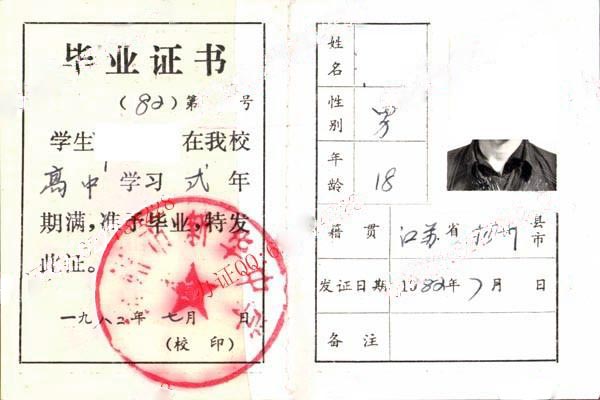 毕业证书
(82)第 号
学生 在我校
高中 学习 弍 年
期满，准予毕业，特发
此证。
一九八二年 七月 日
(校 印)
办证QQ:6
姓名
性别 男
年龄 18
籍贯 江苏省 扬州 县市
发证日期 1982年 7月 日
备注